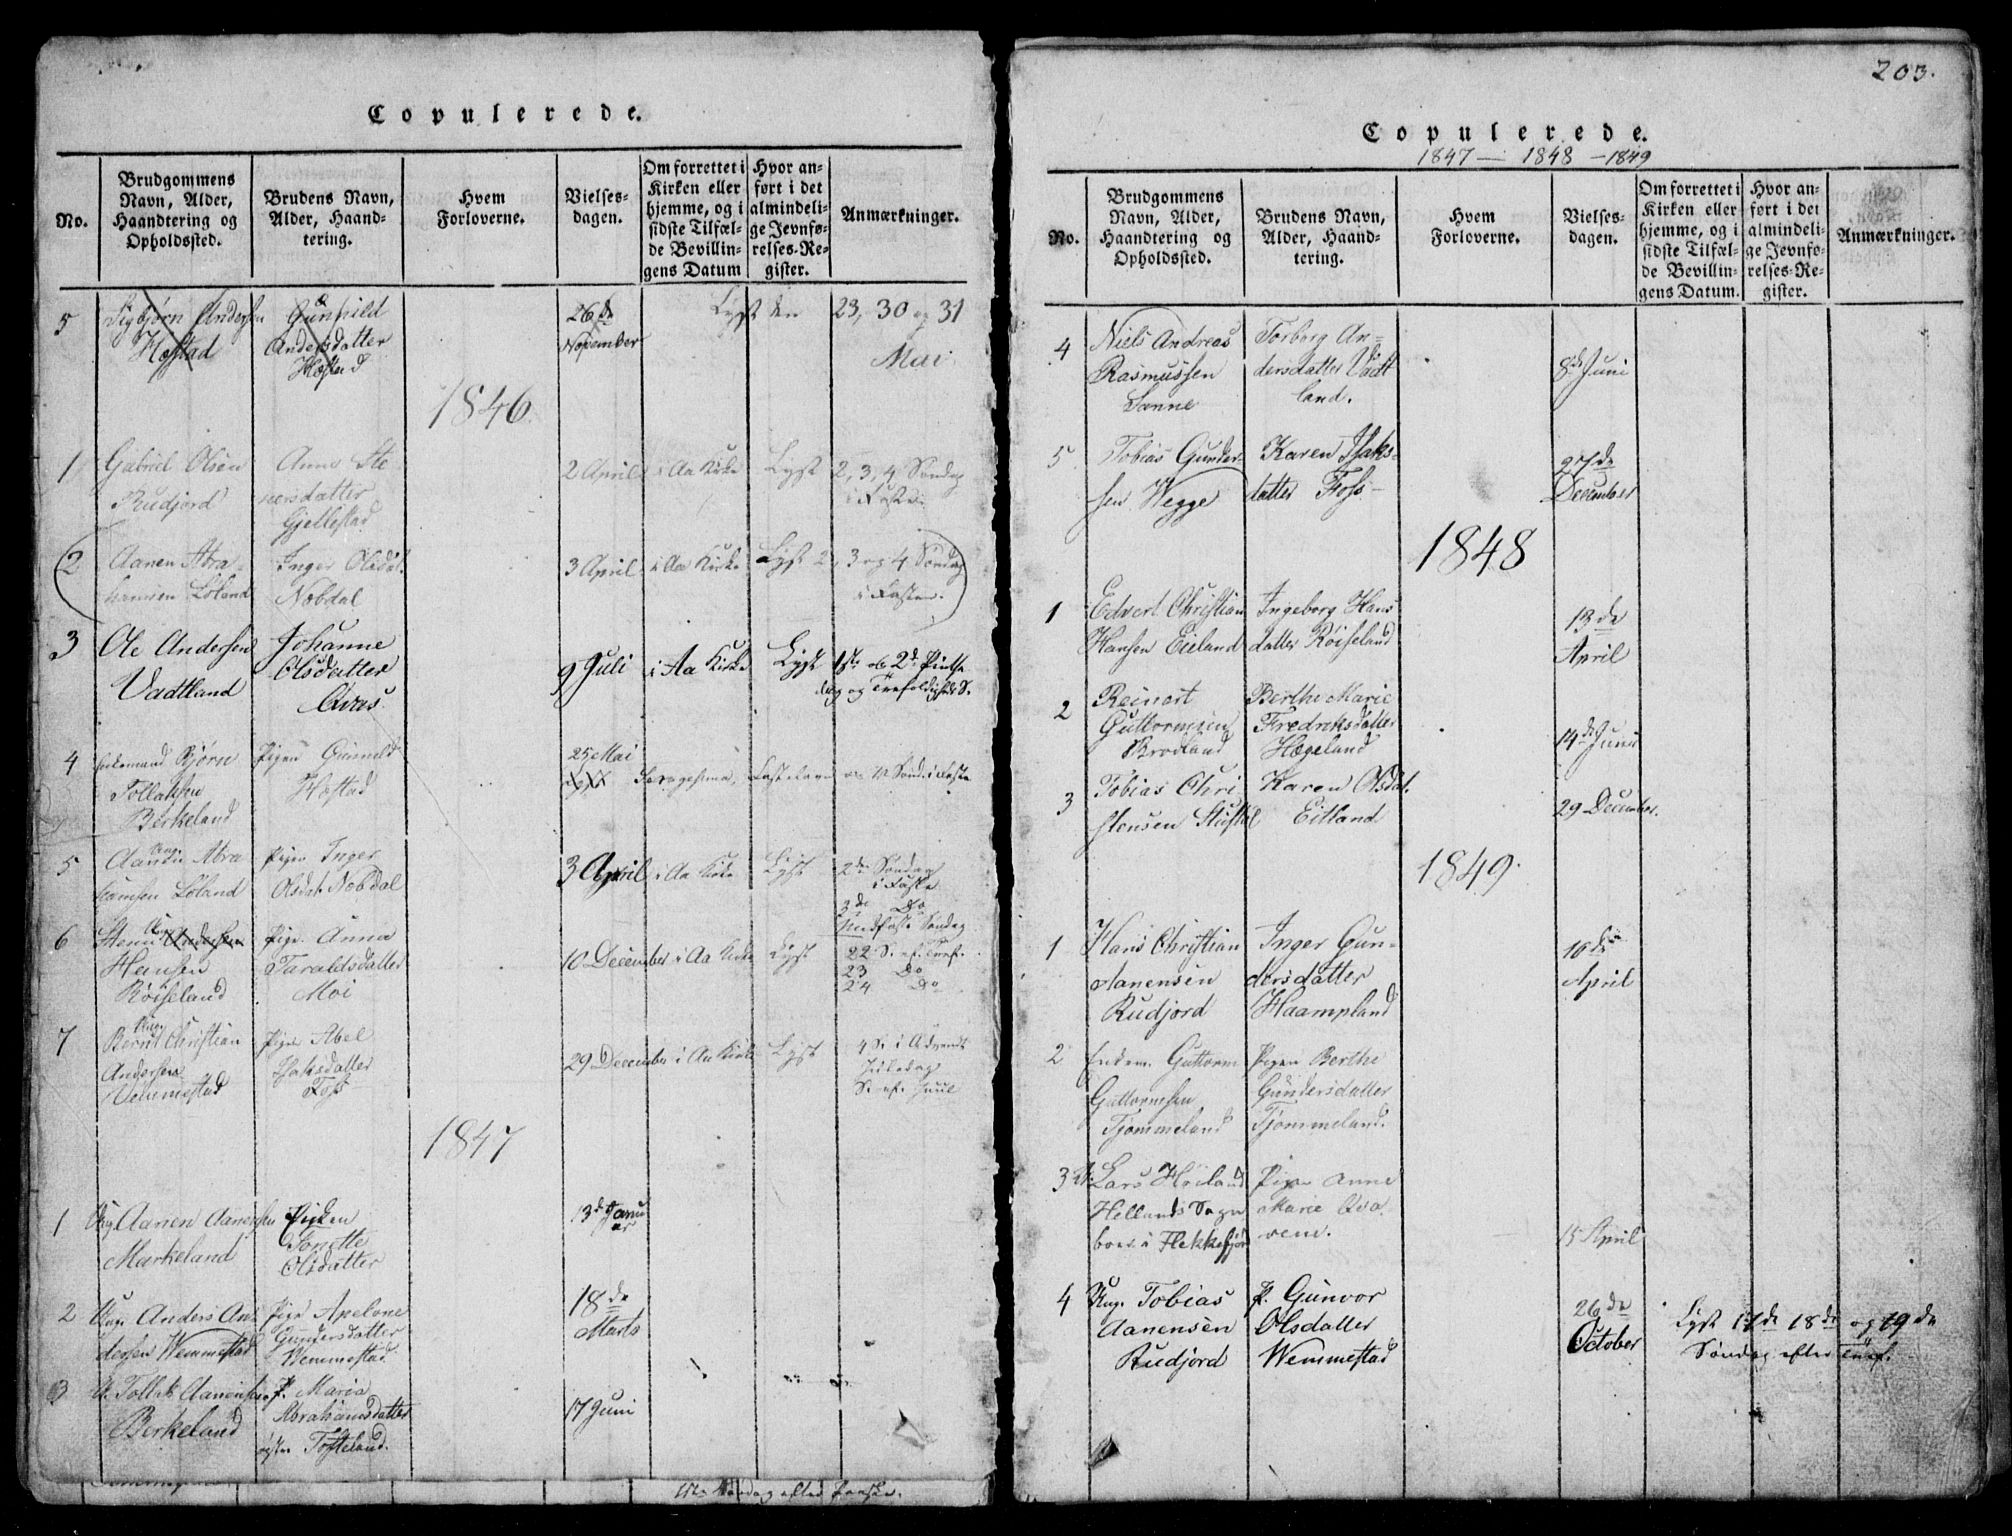 Copulerede.
No.
Brudgommens
Navn, Alder,
Haandtering og
Opholdssted.
Brudens Navn,
Alder, Haand-
tering.
Hvem
Forloverne.
Vielses-
dagen.
Om forrettet i
Kirken eller
hjemme, og i
sidste Tilfæl-
de Bevillin-
gens Datum
Hvor an-
ført i det
almindeli-
ge Jevnfø-
relses-Re-
gister.
Anmærkninger.
5
Sigbjørn Andersen
Hostad
Gunhild
Andersdatter
Hostad
26de
November
Lyst den 23, 30 og 31
Mai
1846.
1
Gabriel Olsen
Rudjord
Anne Ste
nersdatter
Gjellestad
2 April
i Aa Kirke
Lyst
2, 3, 4 Søndag
i Faste
2
Aanen Abra-
hamsen Loland
Inger Olsdat.
Nobdal
3 April
i Aa Kirke
Lyst 2, 3 og 4 Søndag
i Fasten.
3
Ole Andersen
Vadtland
Johanne
Olsdatter
Qvas
9 Juli
i Aa Kirke
Lyst
1ste og 2d Pintse
dag og Trefoldigheds S.
4
Enkemand Bjørn
Tollaksen
Berkeland
Pigen Gunnild
Hostad
25 Mai
Fastelavn og 1 Sønd. i Faste
5
Ung.
Aanen Abra
hamsen Loland
Pigen Inger
Olsdat. Nobdal
3 April
i Aa Kirke
Lyst
2den Søndag
i Faste
3de Do
Midfaste Søndag
6
Ung.
Stenn Andersen
Hansen
Røiseland
Pige Anna
Taraldsdatter
Moi
10 December
i Aa Kirke
Lyst
22 S. ef. Tref.
23 Do
24 Do
7
Ung.
Bernt Christian
Andersen
Vemmestad
Pige Abel
Isaksdatter
Foss
29 December
i Aa Kirke
Lyst
4 S. i Advendt
Juledag
S. ef. Juul
1847
1
Ung. Aanen Aanensen
Markeland
Pigken
Sonette
Olsdatter
13de Janu
ar
2
Ung. Anders An
dersen Wemmestad
Pige Apelone
Gundersdatter
Wemmestad
18de
Marts
3
U. Tollak Aanensen
Berkeland
P. Maria
Abrahamsdatter
Tofteland.
17 Juni
Søndag efter Paaske.
203.
Copulerede.
1847 — 1848 — 1849
No.
Brudgommens
Navn, Alder,
Haandtering og
Opholdssted.
Brudens Navn,
Alder, Haand-
tering.
Hvem
Forloverne.
Vielses-
dagen.
Om forrettet i
Kirken eller
hjemme, og i
sidste Tilfæl-
de Bevillin-
gens Datum.
Hvor an-
ført i det
almindeli-
ge Jevnfø-
relses-Re-
gister.
Anmærkninger.
4
Niels Andreas
Rasmussen
Sanne
Torborg An-
dersdatter Vadt
land.
8de Juni
5
Tobias Gunder-
sen Wegge
Karen Isaks-
datter Foss-
27de
December
1848
1
Edvert Christian
Hansen Eieland
Ingeborg Hans
datter Røiseland
13de
April
2
Reinert
Guttormsen
Brodland
Berthe Marie
Fredriksdatter
Hægeland
14de Juni
3
Tobias Chri
stensen Stustøl
Karen Olsdat.
Eitland
29 December.
1849.
1
Hans Christian
Aanensen
Rudjord
Inger Gun-
dersdatter
Haampland
16de
April
2
Enkem. Guttorm
Guttormsen
Tjommeland
Pigen Berthe
Gundersdatter
Tjommeland.
3
U. Lars Høiland
Hellands Sogn
boer i Flekkefjord
Pigen Anne
Marie Qva
vene.
15 April
4
Ung. Tobias
Aanensen
Rudjord
P. Gunvor
Olsdatter
Wemmestad
26de
October
Lyst 17de 18de og 19de
Søndag efter Tref.